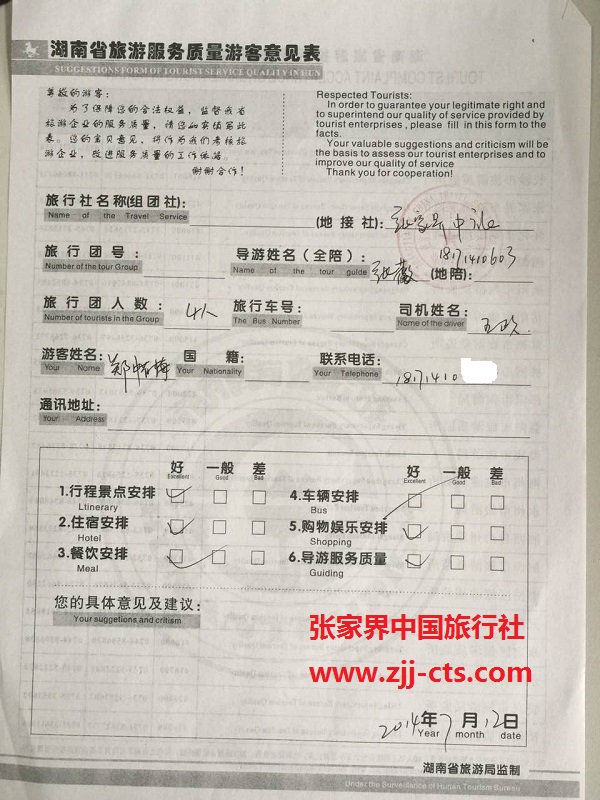 湖南省旅游服务质量游客意见表
SUGGESTIONS FORM OF TOURIST SERVICE QUALITY IN HUN
尊敬的游客：
为了保障您的合法权益，监督我省
旅游企业的服务质量，请您如实填写此
表。您的宝贵意见，将作为我们考核旅
游企业，改进服务质量的工作依据。
谢谢合作！
Respected Tourists:
In order to guarantee your legitimate right and
to superintend our quality of service provided by
tourist enterprises , please fill in this form to the
facts.
Your valuable suggestions and criticism will be
the basis to assess our tourist enterprises and to
improve our quality of service
Thank you for cooperation!
旅行社名称(组团社): (地接社): 张家界中旅
Name of the Travel Service
旅行团号： 导游姓名（全陪） 张薇 (地陪): 18171410603
Number of the tour Group Name of the tour guide
旅行团人数： 4人 旅行车号： 司机姓名：
Number of tourists in the Group The Bus Number Name of the driver
游客姓名: 郑 梅 国籍: 联系电话: 18171410
Your Name Your Nationality Your Telephone
通讯地址:
Your Address
好 一般 差 好 一般 差
Excellent Good Bad Excellent Good Bad
1.行程景点安排 4.车辆安排
Ltinerary Bus
2.住宿安排 5.购物娱乐安排
Hotel Shopping
3.餐饮安排 6.导游服务质量
Meal Guiding
您的具体意见及建议：
Your suggetions and critism
张家界中国旅行社
www.zjj-cts.com
2014年7月12日
Year month date
湖南省旅游局监制
Under the Surveillance of Hunan Tourism Bureau